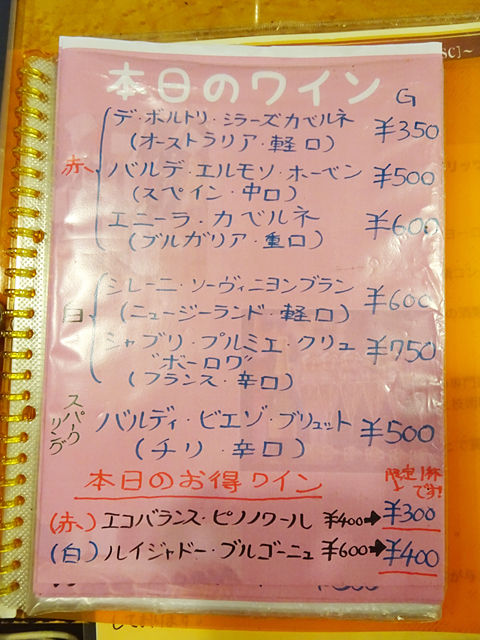 SC]~
本日のワイン
G
赤
デ・ボルトリ・シラーズカベルネ ¥350
(オーストラリア・軽口)
バルデ・エルモソ・ホーベン ¥500
(スペイン・中口)
エニーラ・カベルネ ¥600
(ブルガリア・重口)
白
シレーニ・ソーヴィニヨンブラン ¥600
(ニュージーランド・軽口)
シャブリ・プルミエ・クリュ ¥750
"ボーロワ"
(フランス・辛口)
スパークリング
バルディ・ビエゾ・ブリュット ¥500
(チリ・辛口)
本日のお得ワイン
限定1杯
です!
(赤)エコバランス・ピノノワール ¥400➡¥300
(白)ルイジャドー・ブルゴーニュ ¥600➡¥400